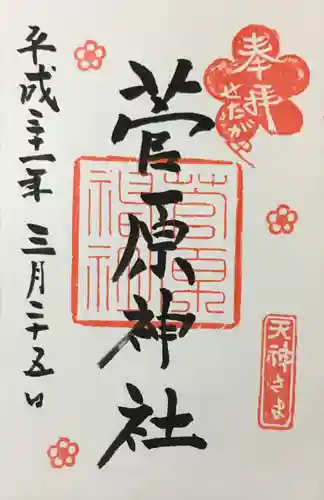 奉拝
せたがや
菅原神社
菅原
神社
天神さま
平成三十一年 三月二十五日